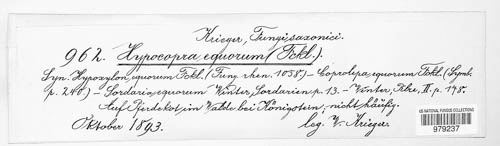 Krieger, Fungi saxonici.
962. Hypocopra equorum (Fckl.).
Syn. Hypoxylon equorum Fckl. (Fung. rhen. 1058.) – Coprolepa equorum Fckl. (Symb.
p. 240) – Sordaria equorum Winter, Sordarien p. 13. – Winter, Pilze, II. p. 178.
Auf Pferdekot im Walde bei Königstein, nicht häufig.
Oktober 1893. leg. W. Krieger.
US NATIONAL FUNGUS COLLECTIONS
979237